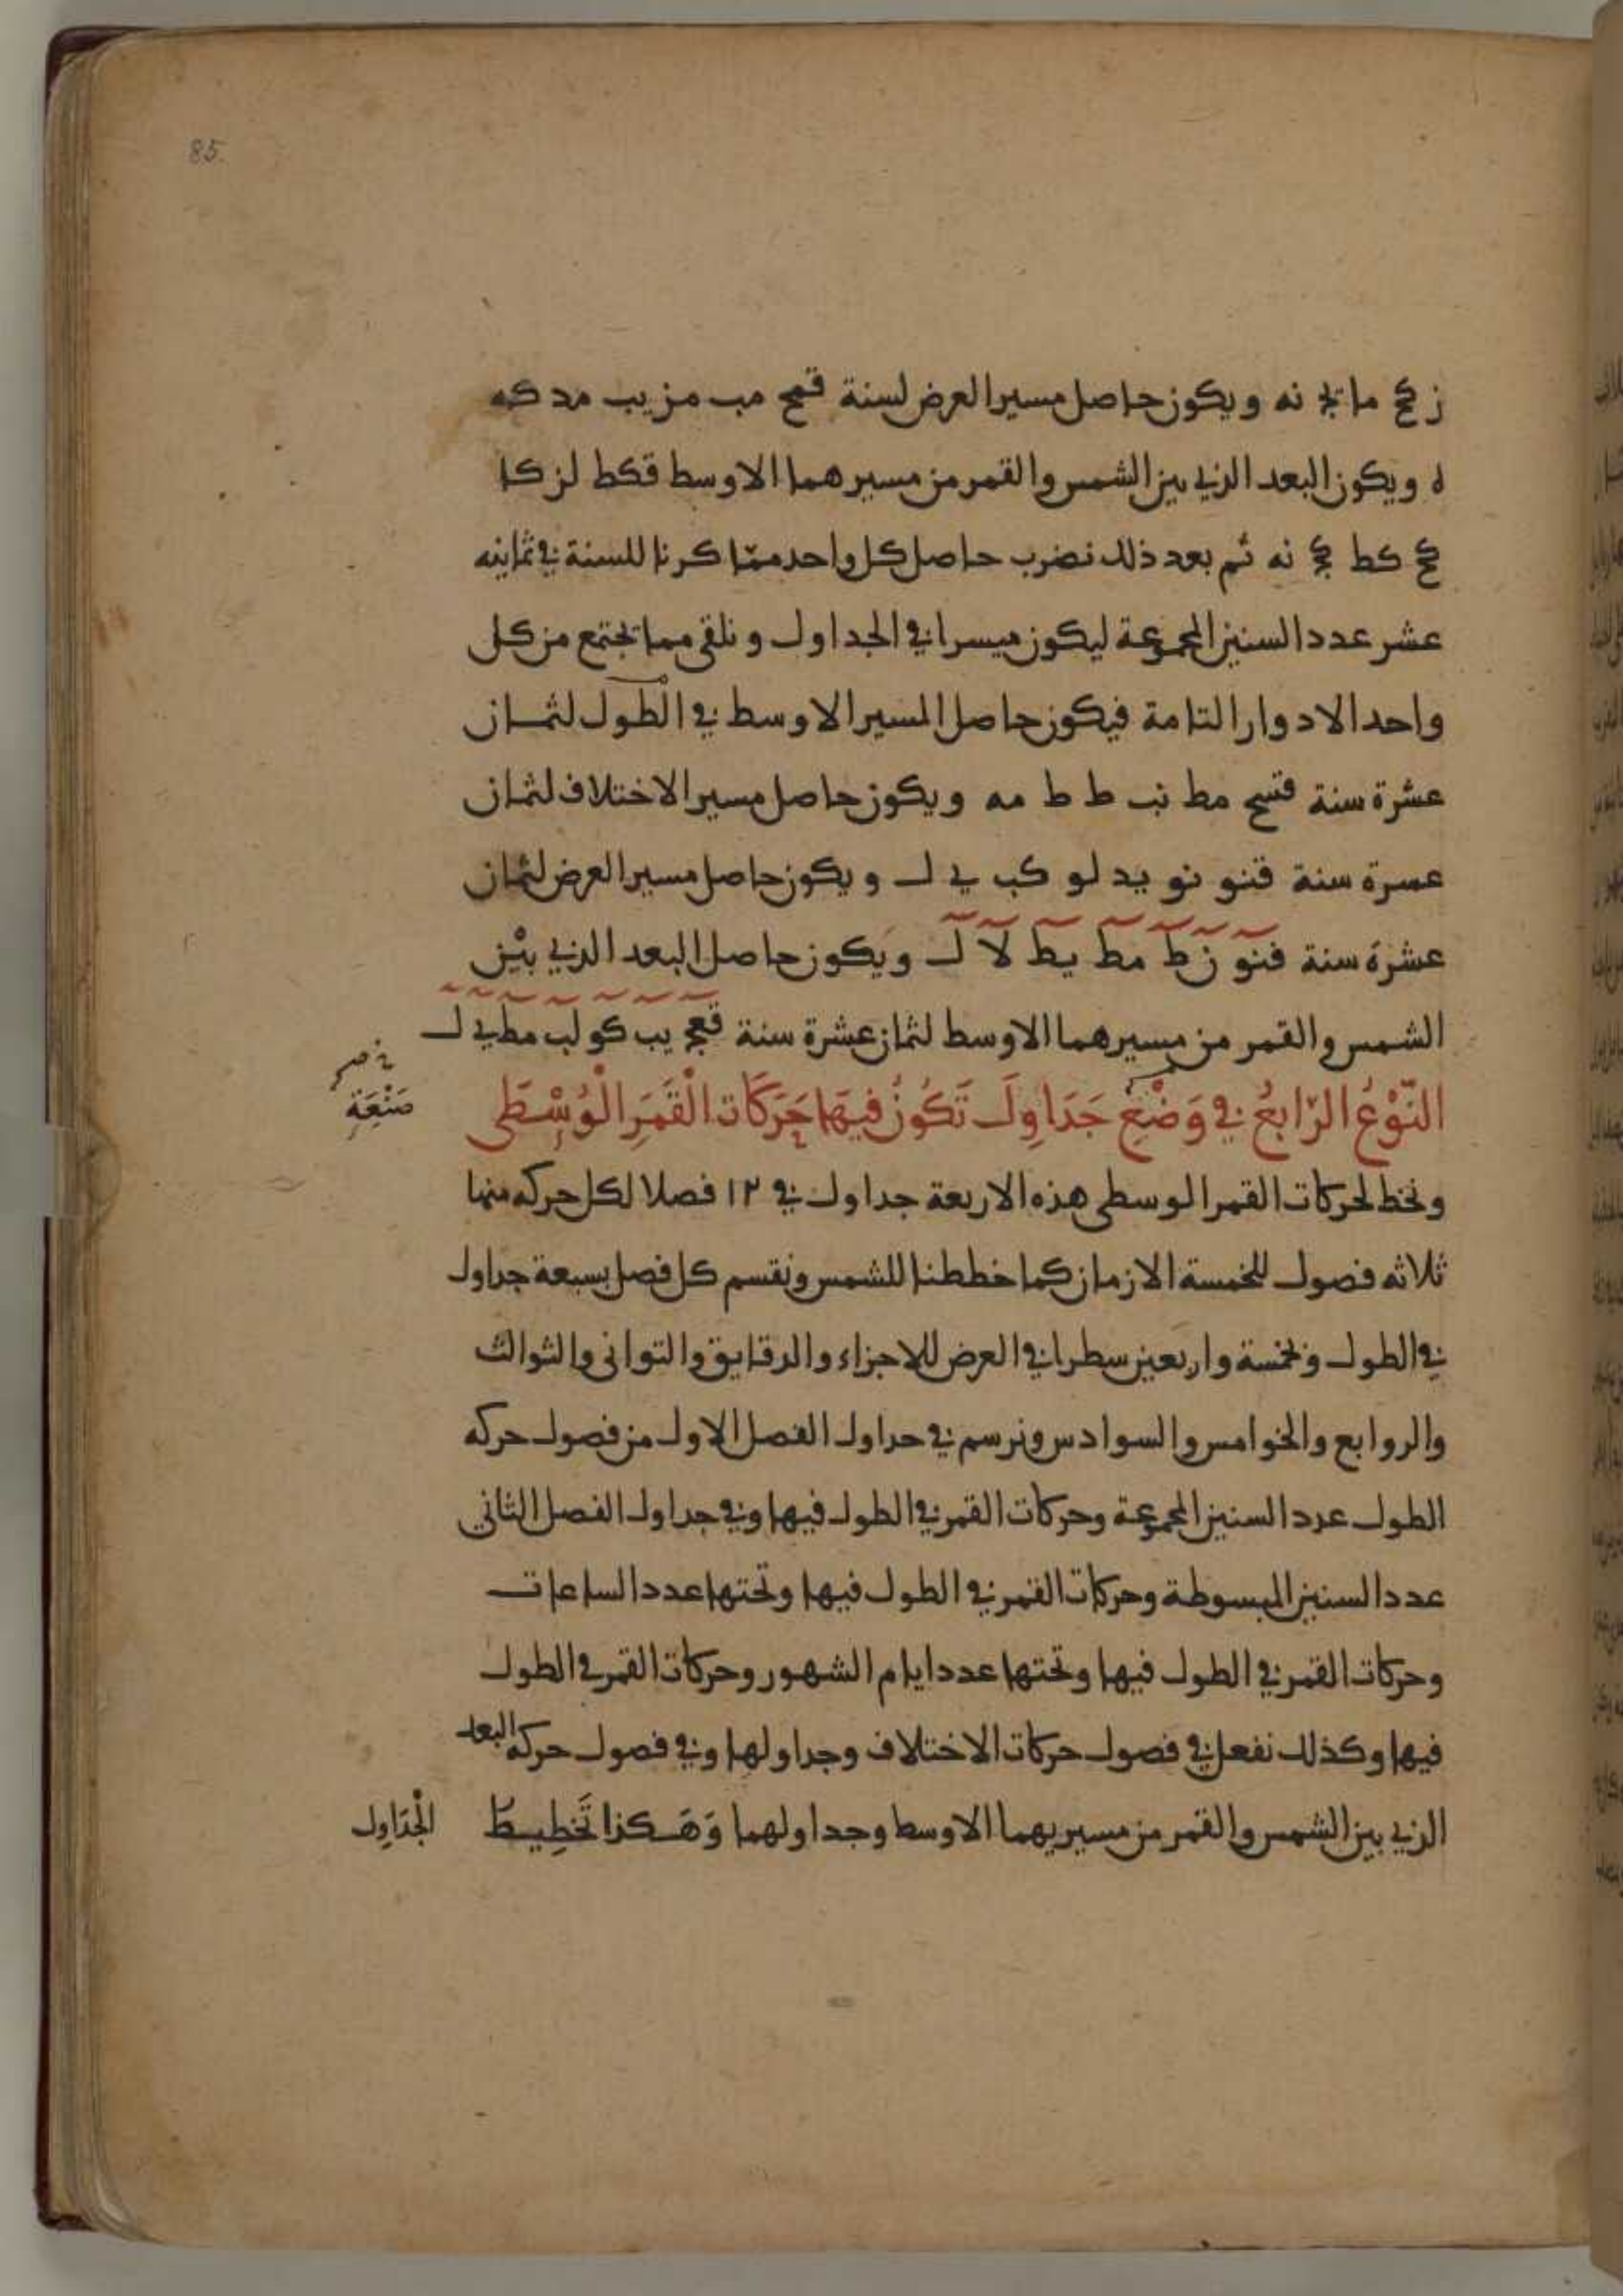 85.
ز كح ما يج نه ويكون حاصل مسير العرض لسنة قمح مب مز يب مد كه
ه ويكون البعد الذي بين الشمس والقمر من مسيرهما الاوسط قكط لز كا
كح كط كح نه ثم بعد ذلك نضرب حاصل كل واحد مما كرنا للسنة في ثمانيه
عشر عدد السنين المجموعة ليكون ميسرا في الجداول ونلقى مما تجتمع من كل
واحد الادوار التامة فيكون حاصل المسير الاوسط في الطول لثمان
عشرة سنة قسح مط نب ط ط مه ويكون حاصل مسير الاختلاف لثمان
عسرة سنة قنو نو يد لو كب ي ل ويكون حاصل مسير العرض لثمان
عشرة سنة قنو نط مط يط لا ل ويكون حاصل البعد الذي بين
الشمس والقمر من مسيرهما الاوسط لثمان عشرة سنة قعج يب كو لب مط ي ل
صَنْعَةِ
النَّوْعُ الرَّابِعُ في وَضْعِ جَدَاوِلَ تَكُونُ فِيهَا حَرَكَات الْقَمَرِ الْوُسْطَى
ونخط لحركات القمر الوسطى هذه الاربعة جداول في ١٢ فصلا لكل حركه منها
ثلاثه فصول للخمسة الازمان كما خططنا للشمس ونقسم كل فصل بسبعة جداول
في الطول وبخمسة واربعين سطرا في العرض للاجزاء والدقايق والثوانى والثوالث
والروابع والخوامس والسوادس ونرسم في جداول الفصل الاول من فصول حركه
الطول عدد السنين المجموعة وحركات القمر في الطول فيها وفي جداول الفصل الثاني
عدد السنين المبسوطة وحركات القمر في الطول فيها وتحتها عدد الساعات
وحركات القمر في الطول فيها وتحتها عدد ايام الشهور وحركات القمر في الطول
فيها وكذلك نفعل في فصول حركات الاختلاف وجداولها وفي فصول حركه البعد
الذي بين الشمس والقمر من مسيريهما الاوسط وجداولهما وَهَكذا تَخْطِيطُ الْجَدَاوِل